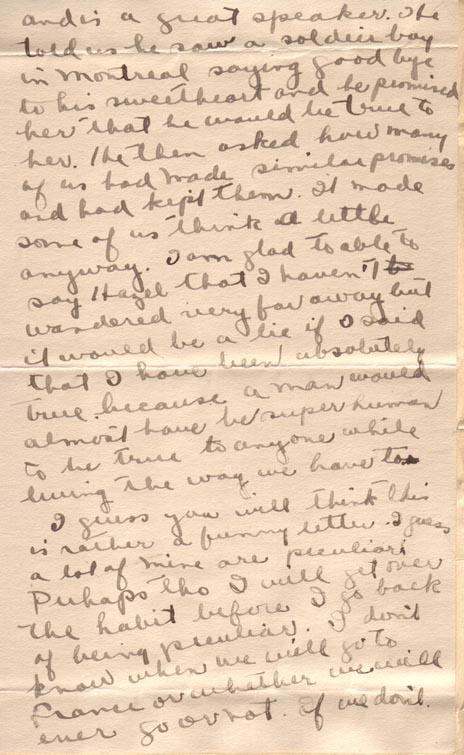 and is a great speaker. He
told us he saw a soldier boy
in Montreal saying good bye
to his sweetheart and he promised
her that he would be true to
her. He then asked how many
of us had made similar promises
and had kept them. It made
some of us think a little
anyway. I am glad to able to
say Hazel that I haven't
wandered very far away but
it would be a lie if I said
that I have been absolutely
true because a man would
almost have be super human
to be true to anyone while
living the way we have to
I guess you will think this
is rather a funny letter. I guess
a lot of mine are peculiar.
Perhaps tho I will get over
the habit before I go back
of being peculiar. I don't
know when we will go to
France or whether we will
ever go or not. If we don't.